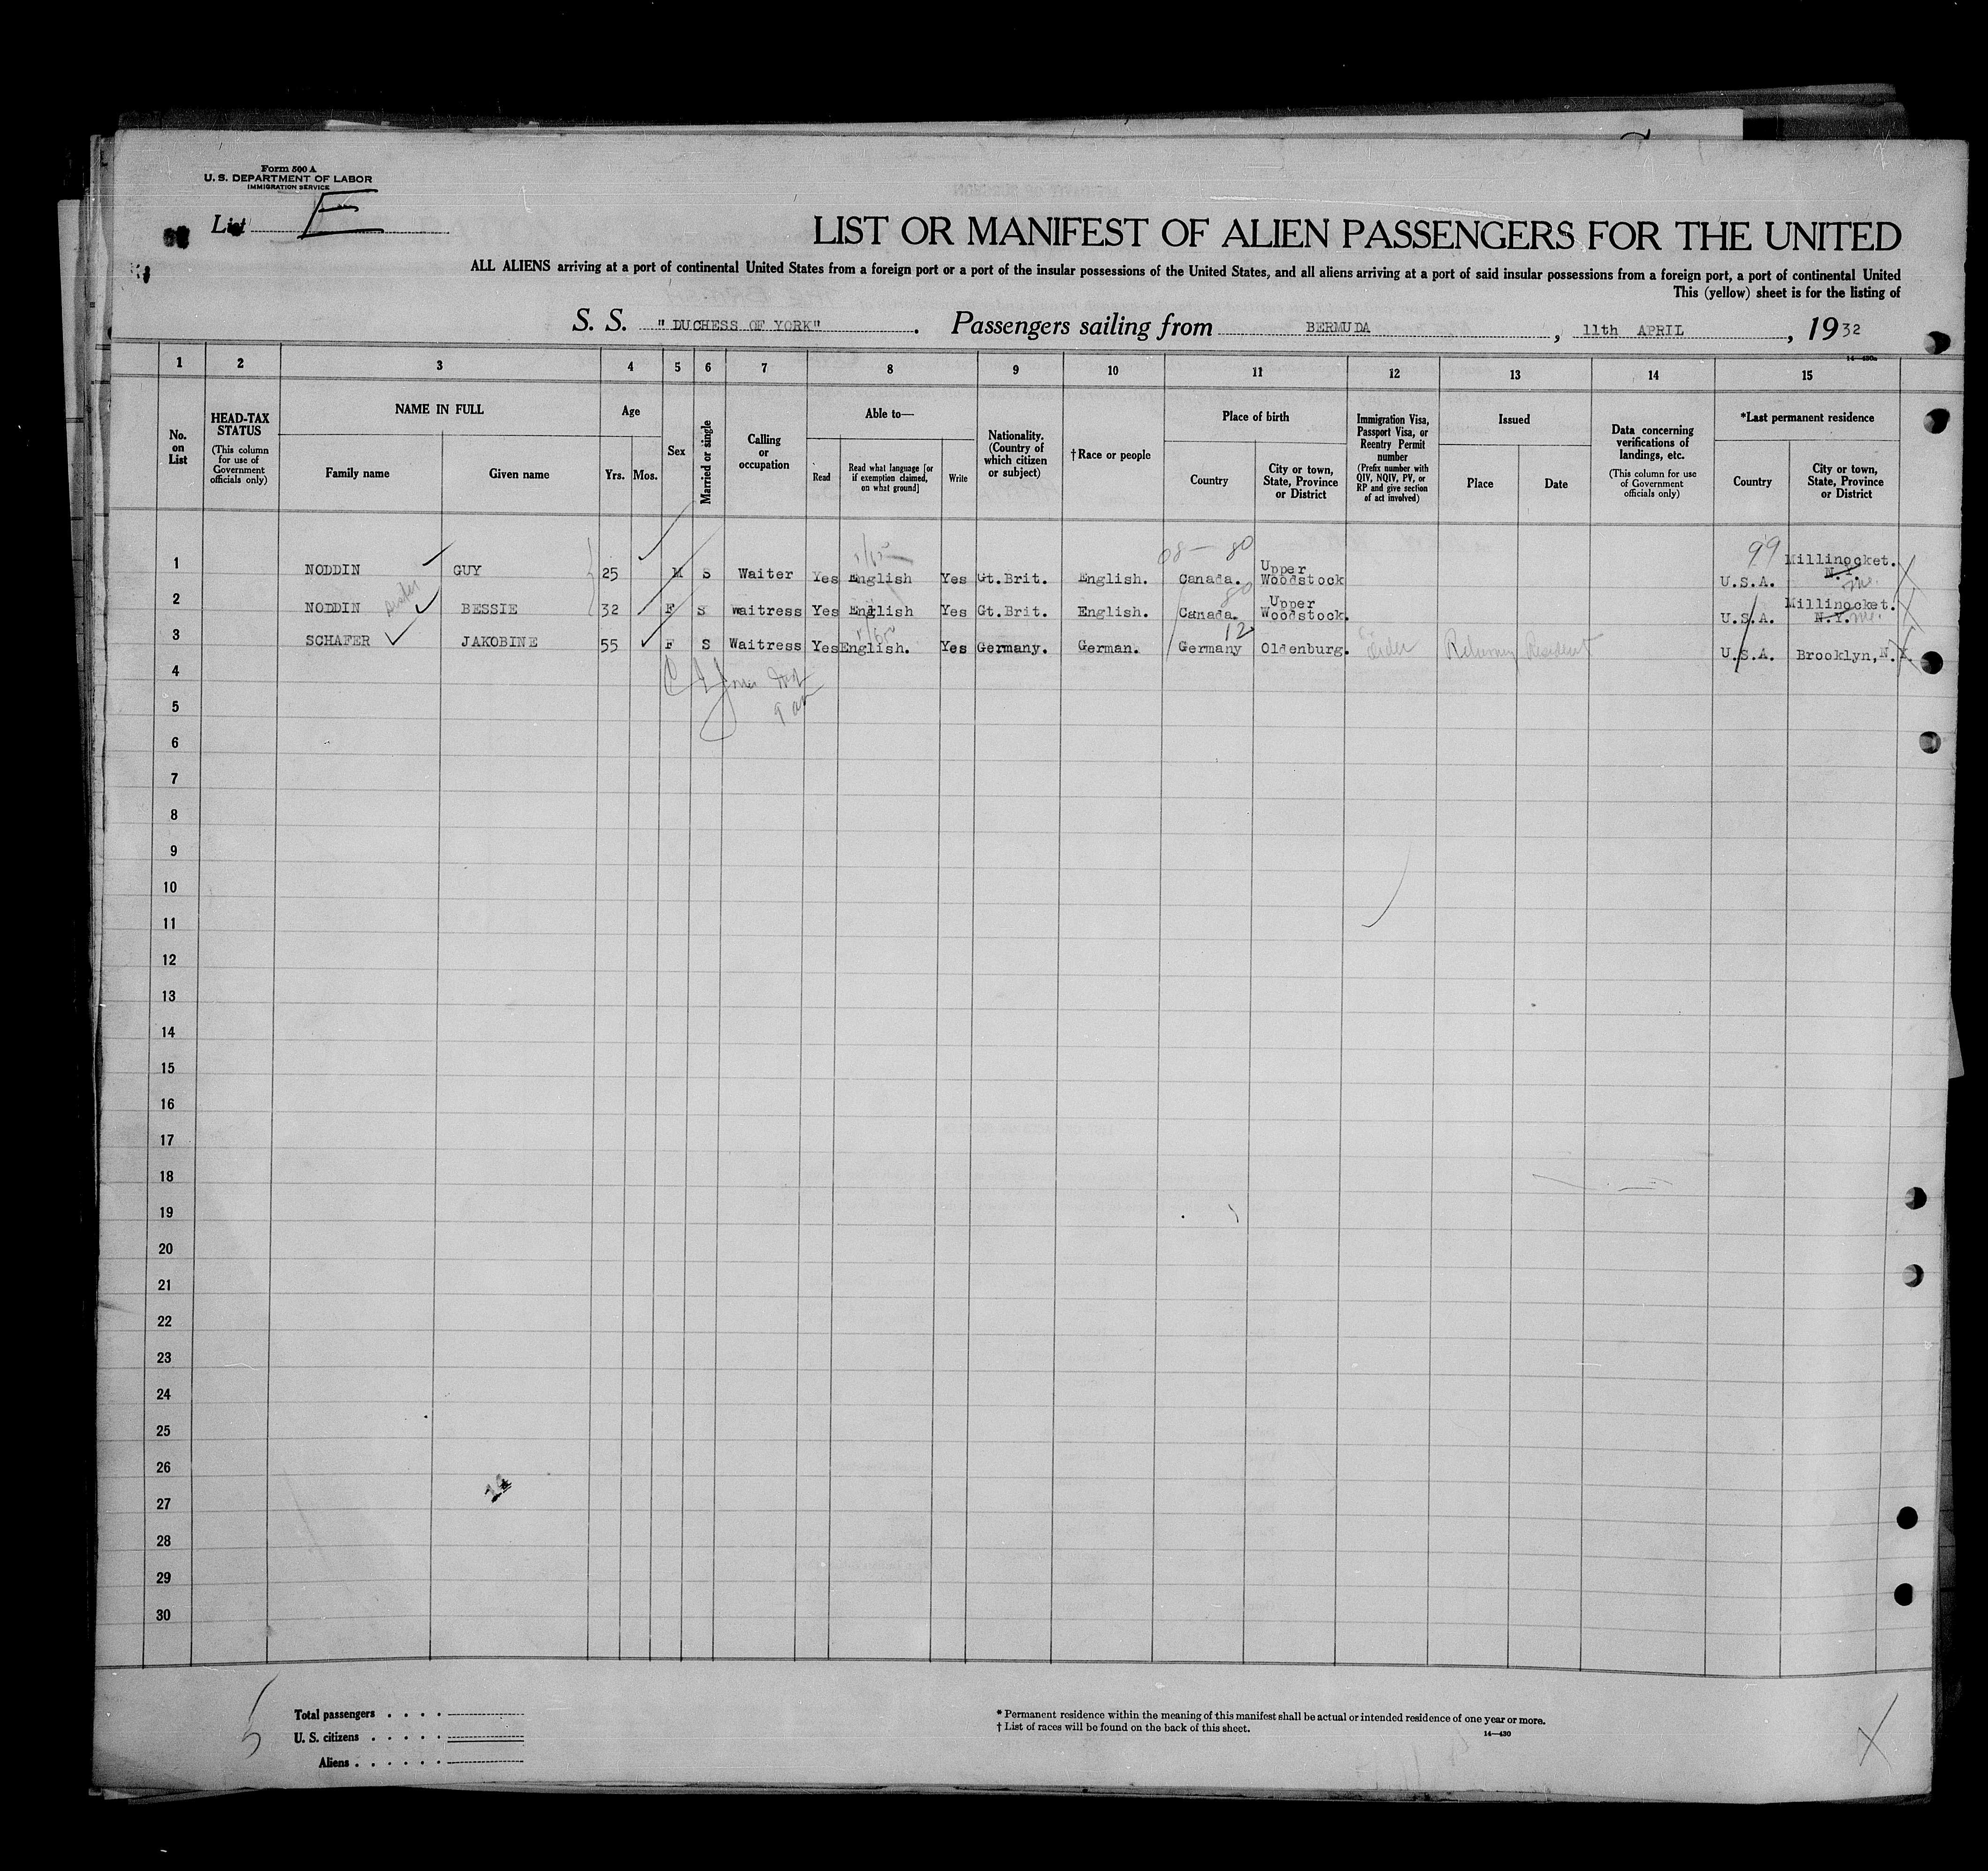 Form 500 A
U. S. DEPARTMENT OF LABOR
IMMIGRATION SERVICE
List E
LIST OR MANIFEST OF ALIEN PASSENGERS FOR THE UNITED
ALL ALIENS arriving at a port of continental United States from a foreign port or a port of the insular possessions of the United States, and all aliens arriving at a port of said insular possessions from a foreign port, a port of continental United
This (yellow) sheet is for the listing of
S. S. "DUCHESS OF YORK". Passengers sailing from BERMUDA, 11th APRIL, 1932
14—430a
1 2 3 4 5 6 7 8 9 10 11 12 13 14 15
No. on List
HEAD-TAX STATUS
(This column for use of Government officials only)
NAME IN FULL
Family name
Given name
Age
Yrs. Mos.
Sex
Married or single
Calling or occupation
Able to—
Read
Read what language [or if exemption claimed, on what ground]
Write
Nationality. (Country of which citizen or subject)
†Race or people
Place of birth
Country
City or town, State, Province or District
Immigration Visa, Passport Visa, or Reentry Permit number
(Prefix number with QIV, NQIV, PV, or RP and give section of act involved)
Issued
Place
Date
Data concerning verifications of landings, etc.
(This column for use of Government officials only)
*Last permanent residence
Country
City or town, State, Province or District
08— 80 99
1 NODDIN GUY 25 M S Waiter Yes English Yes Gt.Brit. English. Canada. Upper Woodstock U.S.A. Millinocket. N.Y. Me.
80
2 NODDIN sister BESSIE 32 F S waitress Yes English Yes Gt.Brit. English. Canada. Upper Woodstock. U.S.A. Millinocket. N.Y. Me.
12
3 SCHAFER JAKOBINE 55 F S Waitress Yes English. Yes Germany. German. Germany Oldenburg. Returning Resident U.S.A. Brooklyn, N.Y.
4
5
6
7
8
9
10
11
12
13
14
15
16
17
18
19
20
21
22
23
24
25
26
27
28
29
30
Total passengers
U. S. citizens
Aliens
* Permanent residence within the meaning of this manifest shall be actual or intended residence of one year or more.
† List of races will be found on the back of this sheet.
14—430